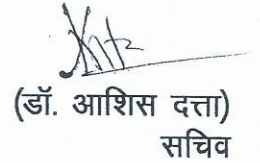 (डॉ. आशिस दत्ता)
सचिव